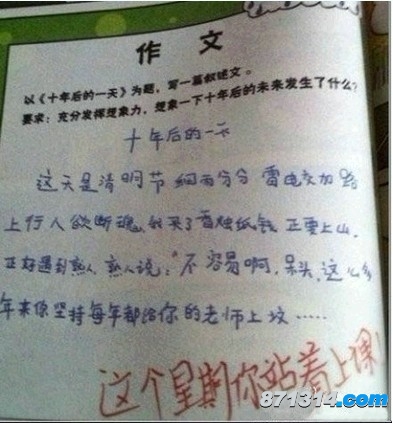 作文
以《十年后的一天》为题，写一篇叙述文。
要求：充分发挥想象力，想象一下十年后的未来发生了什么？
十年后的一天
这天是清明节 细雨分分 雷电交加 路
上行人欲断魂，我买了香烛纸钱 正要上山，
正好遇到熟人，熟人说："不容易啊，呆头，这么多
年来你坚持每年都给你的老师上坟……
这个星期你站着上课！
871314.com